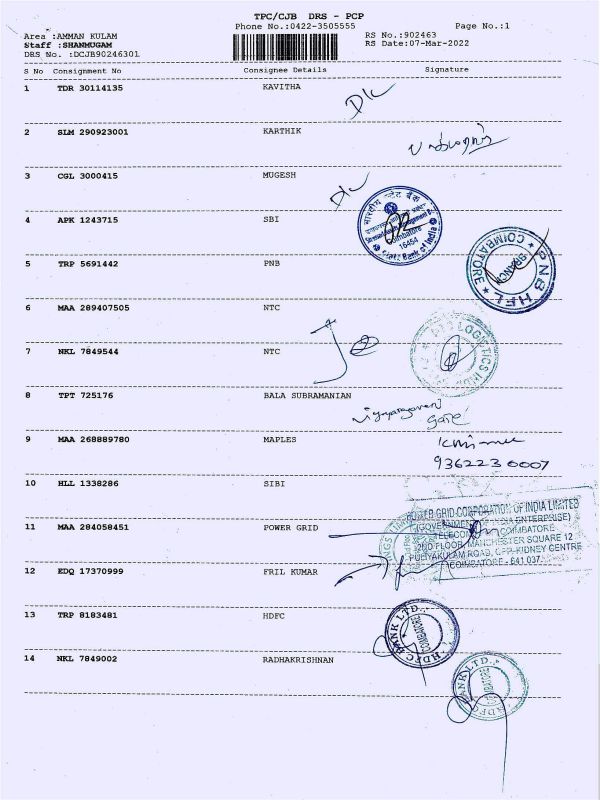 TPC/CJB DRS - PCP
Phone No.:0422-3505555
Page No.:1
Area :AMMAN KULAM
RS No.:902463
Staff :SHANMUGAM
RS Date:07-Mar-2022
DRS No. :DCJB90246301
S No Consignment No Consignee Details Signature
1 TDR 30114135 KAVITHA
2 SLM 290923001 KARTHIK
3 CGL 3000415 MUGESH
4 APK 1243715 SBI
भारतीय स्टेट बैंक
Coimbatore
16454
State Bank of India
5 TRP 5691442 PNB
PNB HFL
COIMBATORE
BRANCH
6 MAA 289407505 NTC
7 NKL 7849544 NTC
LOGISTICS
8 TPT 725176 BALA SUBRAMANIAN
9 MAA 268889780 MAPLES
9362230007
10 HLL 1338286 SIBI
POWER GRID CORPORATION OF INDIA LIMITED
11 MAA 284058451 POWER GRID
2ND FLOOR, MANCHESTER SQUARE 12
PULIYAKULAM ROAD, OPP. KIDNEY CENTRE
COIMBATORE - 641 037.
12 EDQ 17370999 FRIL KUMAR
13 TRP 8183481 HDFC
HDFC BANK LTD.,
COIMBATORE
14 NKL 7849002 RADHAKRISHNAN
HDFC BANK LTD.,